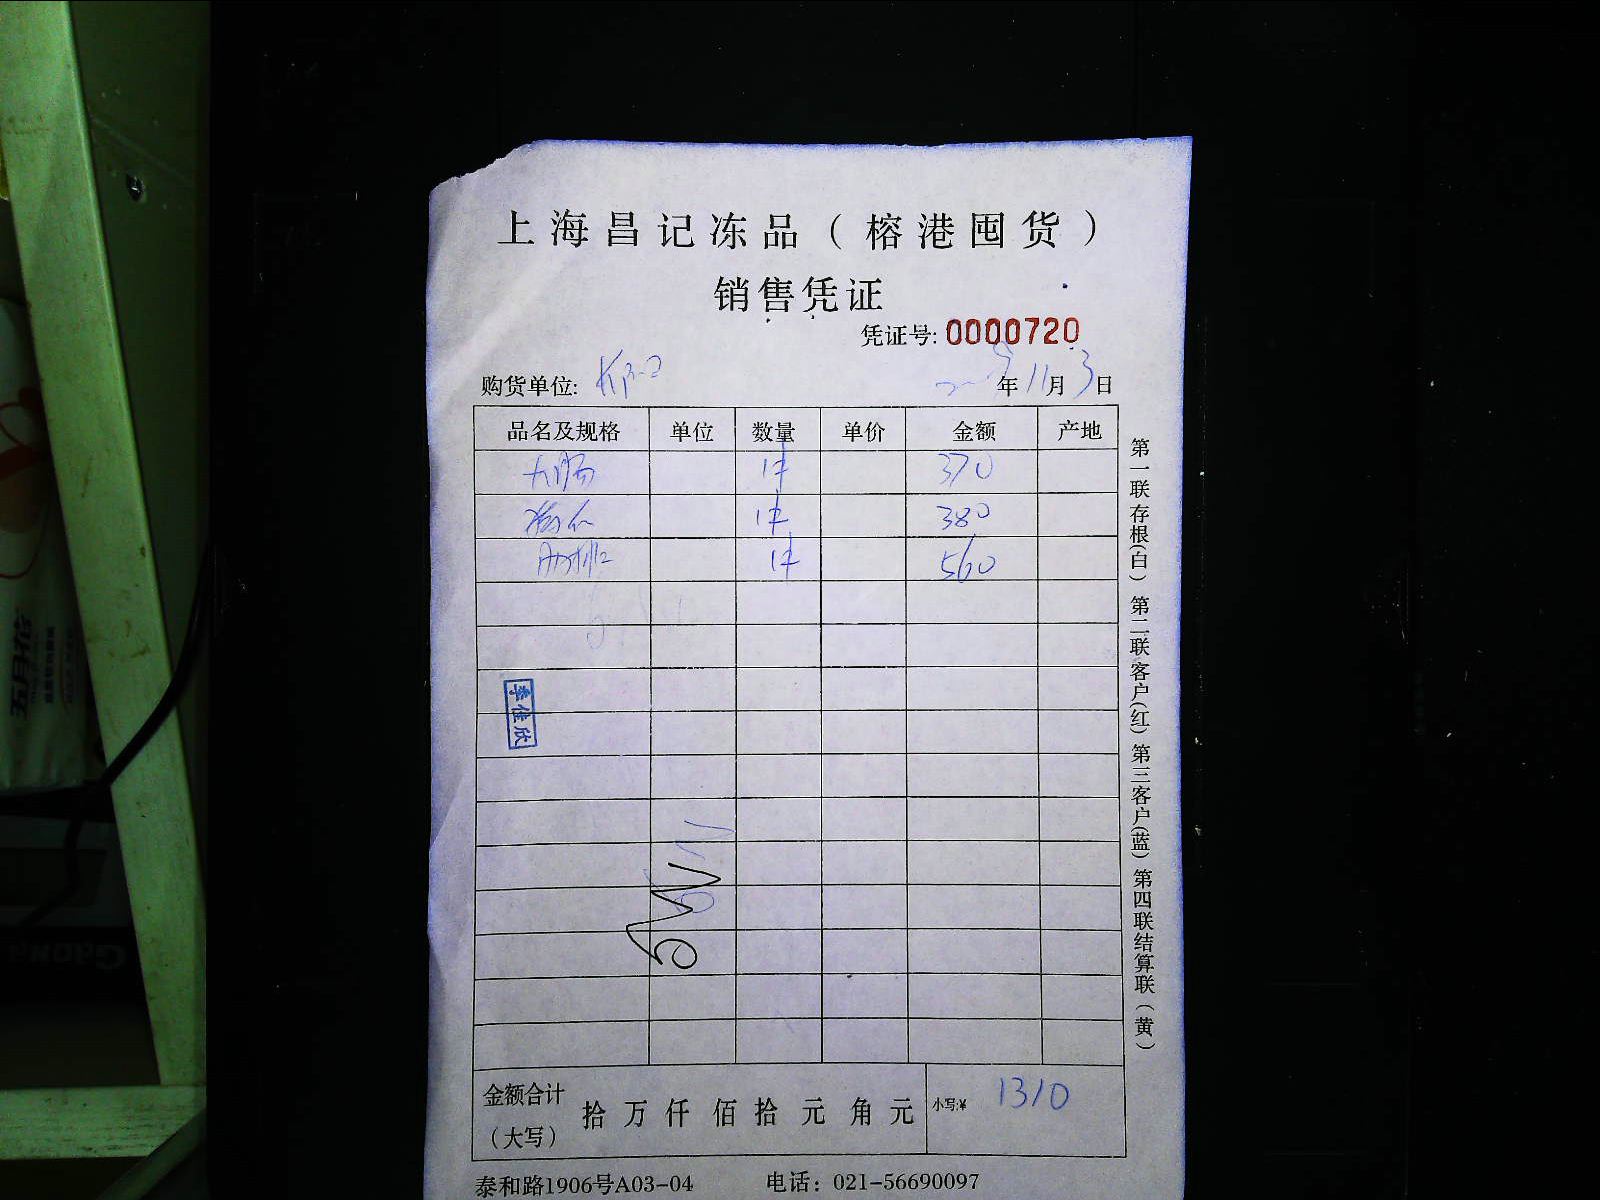 上海昌记冻品（榕港囤货）
销售凭证
凭证号: 0000720
购货单位: 年 11月 3日
品名及规格 单位 数量 单价 金额 产地
大肠 1件 370
1件 380
1件 560
季佳欣
金额合计（大写） 拾 万 仟 佰 拾 元 角 元 小写:¥ 1310
泰和路1906号A03-04 电话: 021-56690097
第一联存根(白) 第二联客户(红) 第三客户(蓝) 第四联结算联(黄)
五月花